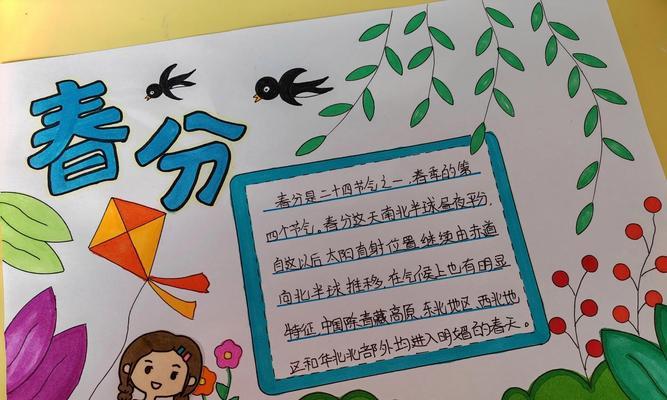 春分
春分是二十四节气之一,春季的第
四个节气。春分这天南北半球昼夜平分,
自这以后太阳直射位置继续由赤道
向北半球推移,在气候上也有明显
特征,中国除青藏高原、东北地区、西北地
区和华北北部外均进入明媚的春天。